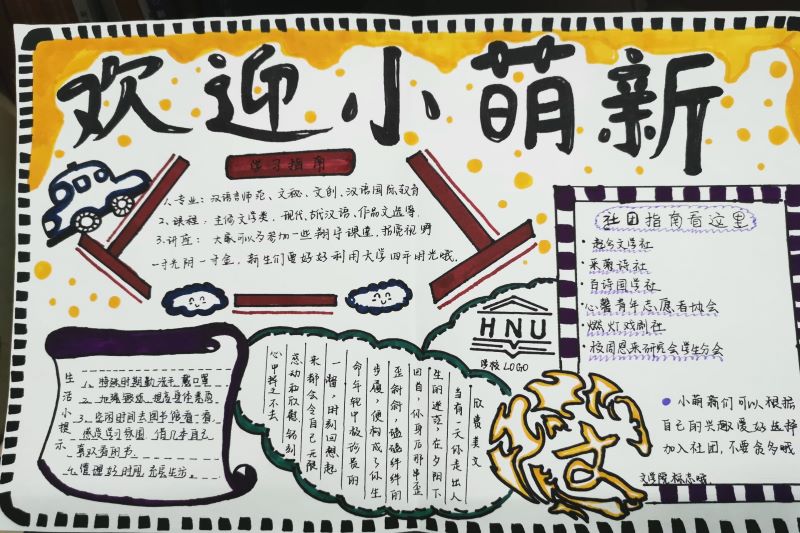 欢迎小萌新
学习指南
1.专业：汉语言师范、文秘、文创、汉语国际教育
2.课程：主修文学类，现代/古代汉语、作品文选等，
3.讲座：大家可以多参加一些翔宇课堂，拓宽视野
一寸光阴一寸金，新生们要好好利用大学四年时光哦。
社团指南看这里
• 赵冬文学社
• 采薇诗社
• 百诗园学社
• 心馨青年志愿者协会
• 燃灯戏剧社
• 校周恩来研究会学生分会
● 小萌新们可以根据
自己的兴趣爱好选择
加入社团，不要贪多哦
文学院标志哦
HNU
学校LOGO
生活小提示
1.特殊时期勤洗手 戴口罩
2.加强锻炼，提高身体素质
3.空闲时间去图书馆看一看，
感受学习氛围 借几本自己
喜欢看的书
4.管理好时间，充实生活。
欣赏美文
当有一天你走出人
生的迷茫，在夕阳下
回首，你身后那串歪
歪斜斜，磕磕绊绊的
步履，便构成了你生
命年轮中最珍贵的
一醉，时刻回想起
来都会令自己无限
感动和欣慰，铭刻
心中挥之不去
文